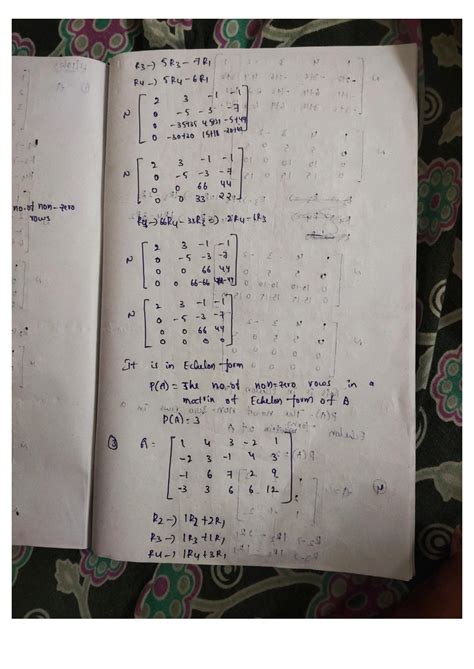 R3 -> 5R3 - 7R1
R4 -> 5R4 - 6R1
N [ 2 3 -1 -1
0 -5 -3 -7
0 -35+35 45+21 -5+49
0 -30+30 15+18 -20+42 ]
N [ 2 3 -1 -1
0 -5 -3 -7
0 0 66 44
0 0 33 22 ]
no. of non-zero
rows
N [ 2 3 -1 -1
0 -5 -3 -7
0 0 66 44
0 0 66-66 44-44 ]
N [ 2 3 -1 -1
0 -5 -3 -7
0 0 66 44
0 0 0 0 ]
It is in Echelon form
P(A) = The no. of non-zero rows in a
matrix of Echelon form of A
P(A) = 3
③ A = [ 1 4 3 -2 1
-2 -3 -1 4 3
-1 6 7 2 9
-3 3 6 6 12 ]
R2 -> 1R2 + 2R1
R3 -> 1R3 + 1R1
R4 -> 1R4 + 3R1